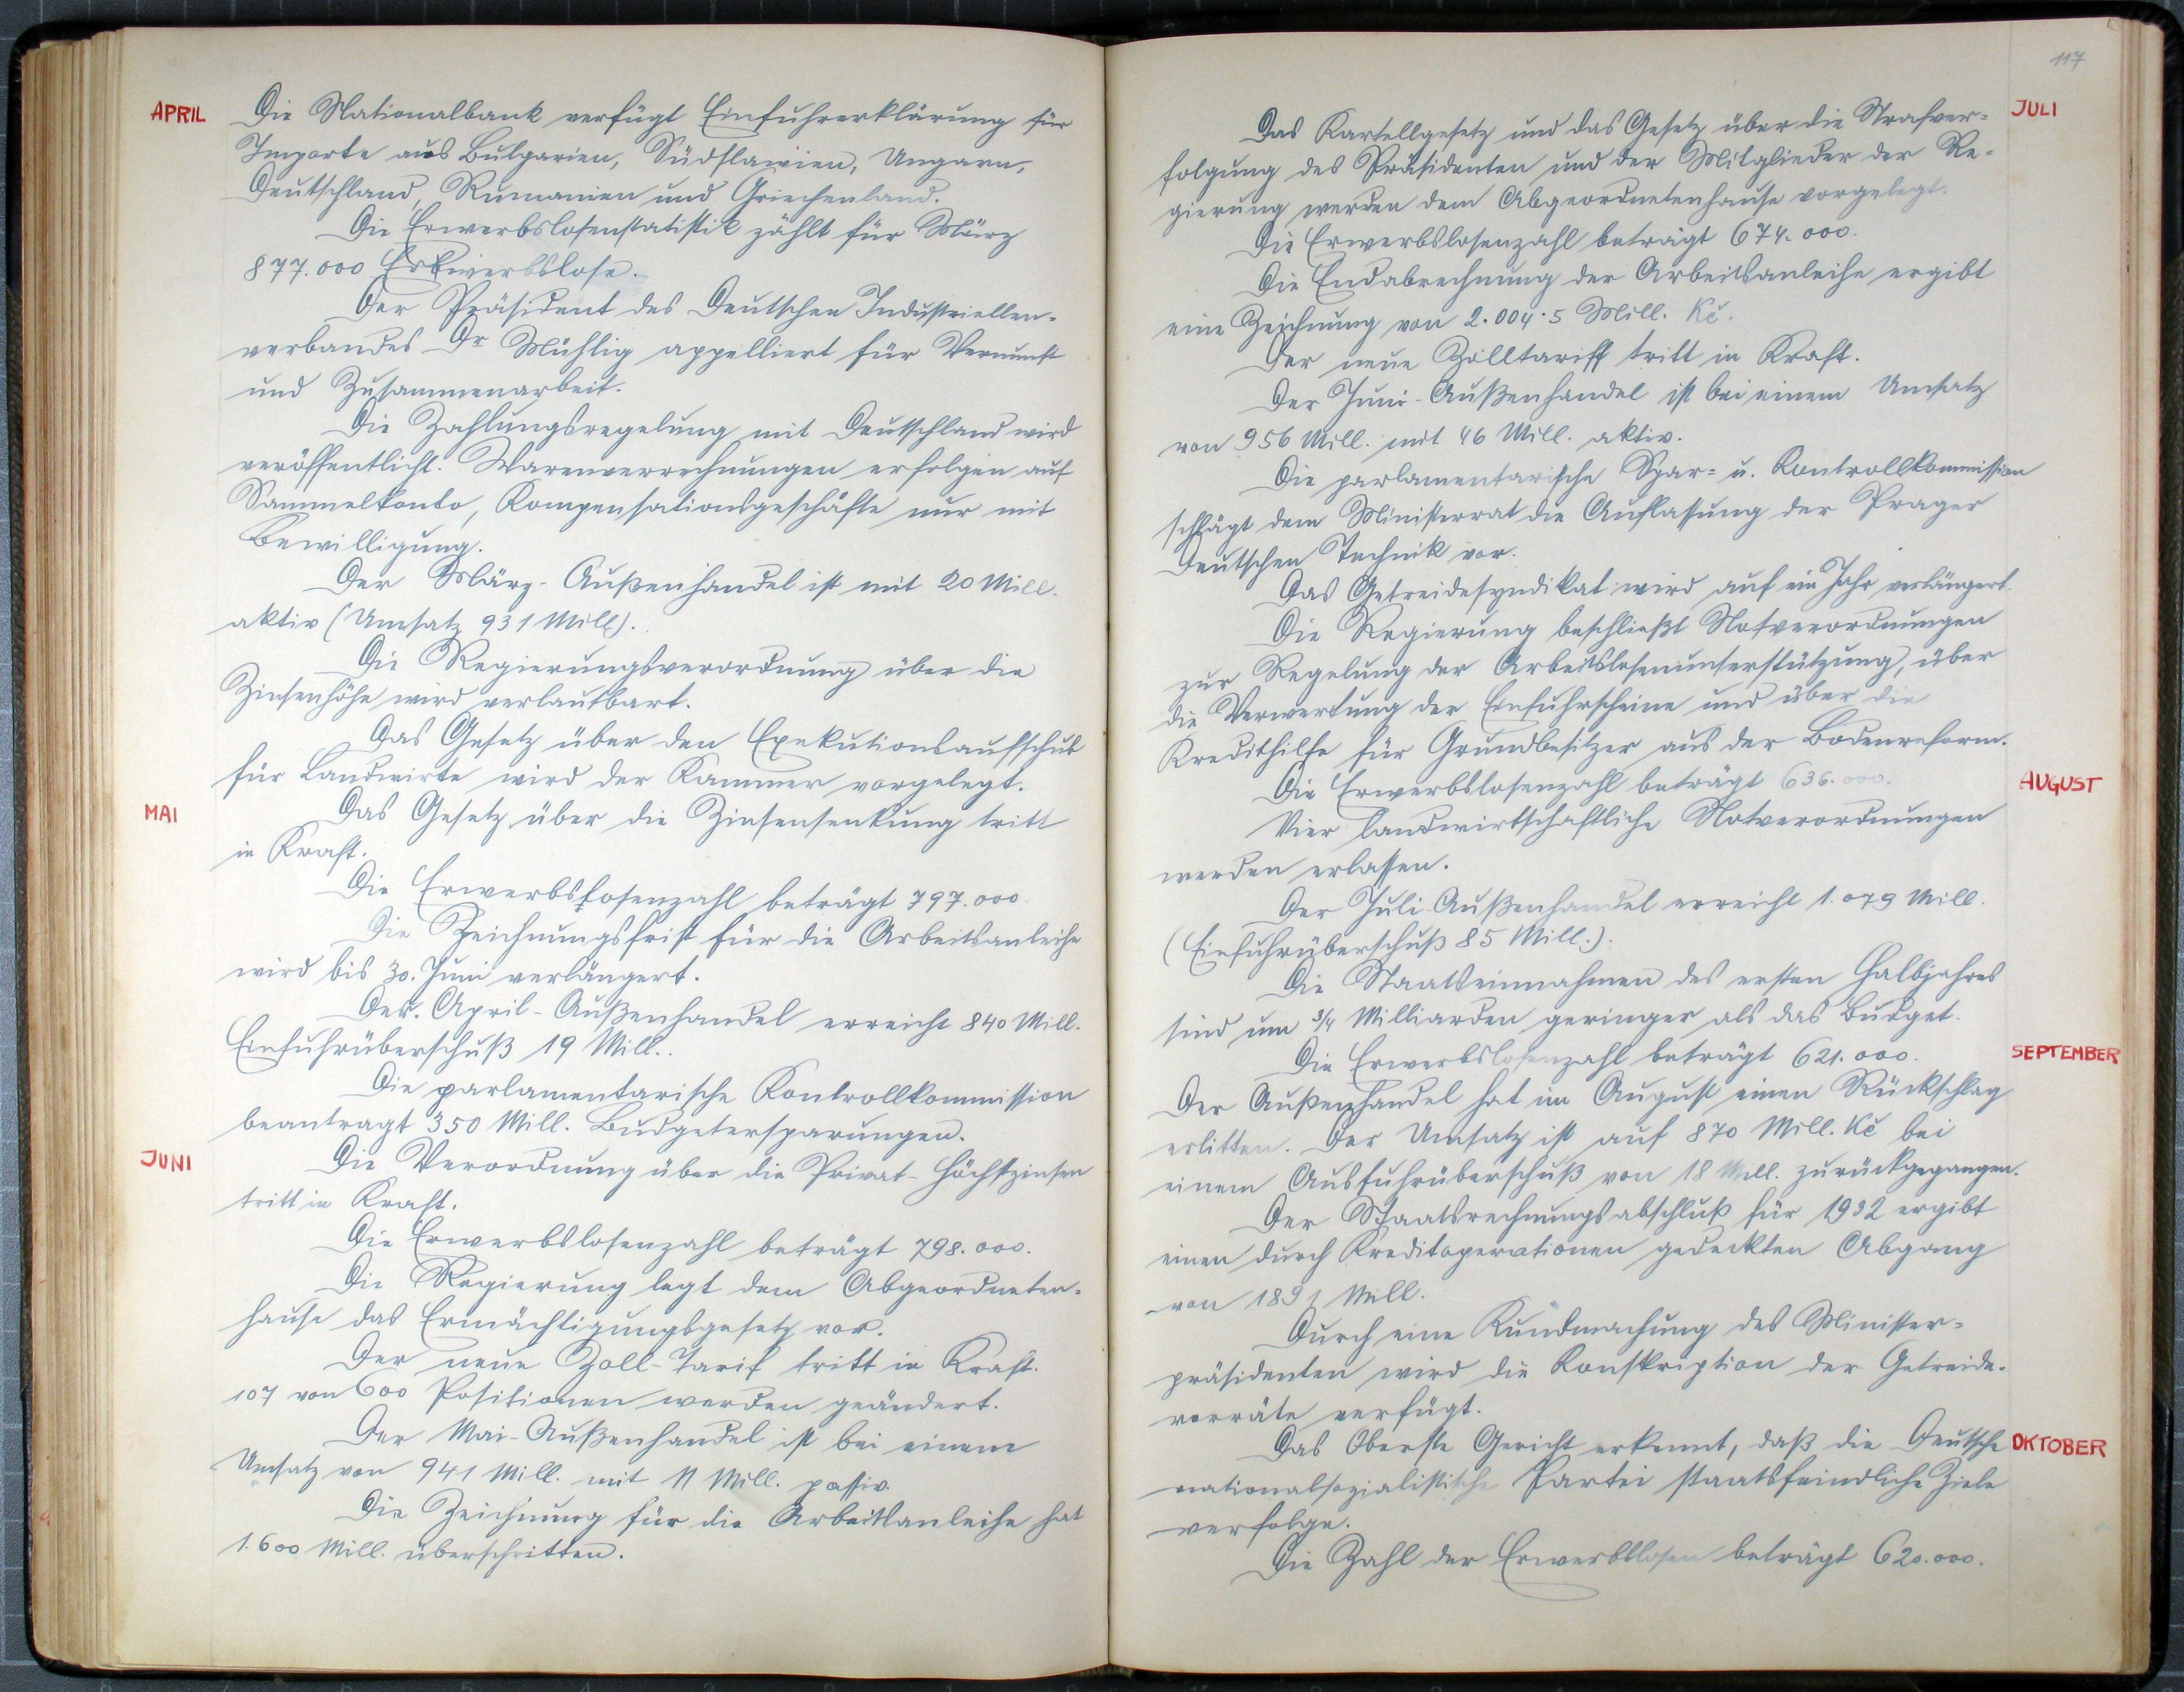 APRIL
Die Nationalbank verfügt Einfuhrerklärung für
Importe aus Bulgarien, Südslawien, Ungarn,
Deutschland, Rumänien und Griechenland.
Die Erwerbslosenstatistik zählt für März
877.000 Erwerbslose.
Der Präsident des Deutschen Industriellen-
verbandes Dr Mühlig appelliert für Vernunft
und Zusammenarbeit.
Die Zahlungsregelung mit Deutschland wird
veröffentlicht. Warenverrechnungen erfolgen auf
Sammelkonto, Kompensationsgeschäfte nur mit
Bewilligung.
Der März-Außenhandel ist mit 20 Mill.
aktiv (Umsatz 931 Mill).
Die Regierungsverordnung über die
Zinsenhöhe wird verlautbart.
Das Gesetz über den Exekutionsaufschub
für Landwirte wird der Kammer vorgelegt.
MAI
Das Gesetz über die Zinsensenkung tritt
in Kraft.
Die Erwerbslosenzahl beträgt 797.000.
Die Zeichnungsfrist für die Arbeitsanleihe
wird bis 30. Juni verlängert.
Der April-Außenhandel erreicht 840 Mill.
Einfuhrüberschuß 19 Mill..
Die parlamentarische Kontrollkommission
beantragt 350 Mill. Budgetersparungen.
JUNI
Die Verordnung über die Privat-Höchstzinsen
tritt in Kraft.
Die Erwerbslosenzahl beträgt 798.000.
Die Regierung legt dem Abgeordneten-
hause das Ermächtigungsgesetz vor.
Der neue Zoll-Tarif tritt in Kraft.
107 von 600 Positionen werden geändert.
Der Mai-Außenhandel ist bei einem
Umsatz von 941 Mill. mit 11 Mill. passiv.
Die Zeichnung für die Arbeitsanleihe hat
1.600 Mill. überschritten.
117
JULI
Das Kartellgesetz und das Gesetz über die Strafver-
folgung des Präsidenten und der Mitglieder der Re-
gierung werden dem Abgeordnetenhause vorgelegt.
Die Erwerbslosenzahl beträgt 674.000.
Die Endabrechnung der Arbeitsanleihe ergibt
eine Zeichnung von 2.004.5 Mill. Kč.
Der neue Zolltariff tritt in Kraft.
Der Juni-Außenhandel ist bei einem Umsatz
von 956 Mill. mit 46 Mill. aktiv.
Die parlamentarische Spar- u. Kontrollkommission
schlägt dem Ministerrat die Auflassung der Prager
Deutschen Technik vor.
Das Getreidesyndikat wird auf ein Jahr verlängert.
Die Regierung beschließt Notverordnungen
zur Regelung der Arbeitslosenunterstützung, über
die Verwertung der Einfuhrscheine und über die
Kredithilfe für Grundbesitzer aus der Bodenreform.
AUGUST
Die Erwerbslosenzahl beträgt 636.000.
Vier landwirtschaftliche Notverordnungen
werden erlassen.
Der Juli Außenhandel erreicht 1.079 Mill.
(Einfuhrüberschuß 85 Mill.).
Die Staatseinnahmen des ersten Halbjahres
sind um 3/4 Milliarden geringer als das Budget.
SEPTEMBER
Die Erwerbslosenzahl beträgt 621.000.
Der Außenhandel hat im August einen Rückschlag
erlitten. Der Umsatz ist auf 870 Mill. Kč bei
einem Ausfuhrüberschuß von 18 Mill. zurückgegangen.
Der Staatsrechnungsabschluß für 1932 ergibt
einen durch Kreditoperationen gedeckten Abgang
von 1891 Mill.
Durch eine Kundmachung des Minister-
präsidenten wird die Konskription der Getreide-
vorräte verfügt.
OKTOBER
Das Oberste Gericht erkennt, daß die Deutsche
nationalsozialistische Partei staatsfeindliche Ziele
verfolge.
Die Zahl der Erwerbslosen beträgt 620.000.